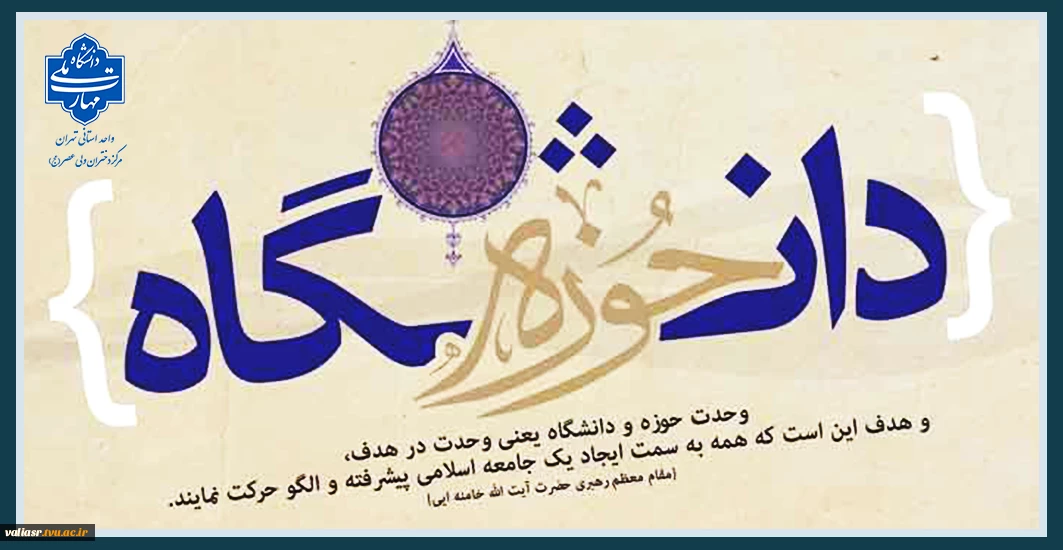 دانشگاه
ملی
مهارت
واحد استانی تهران
مرکز دختران ولی عصر (عج)
دانشگاه
حوزه
وحدت حوزه و دانشگاه یعنی وحدت در هدف،
و هدف این است که همه به سمت ایجاد یک جامعه اسلامی پیشرفته و الگو حرکت نمایند.
(مقام معظم رهبری حضرت آیت الله خامنه ایی)
valiasr.tvu.ac.ir